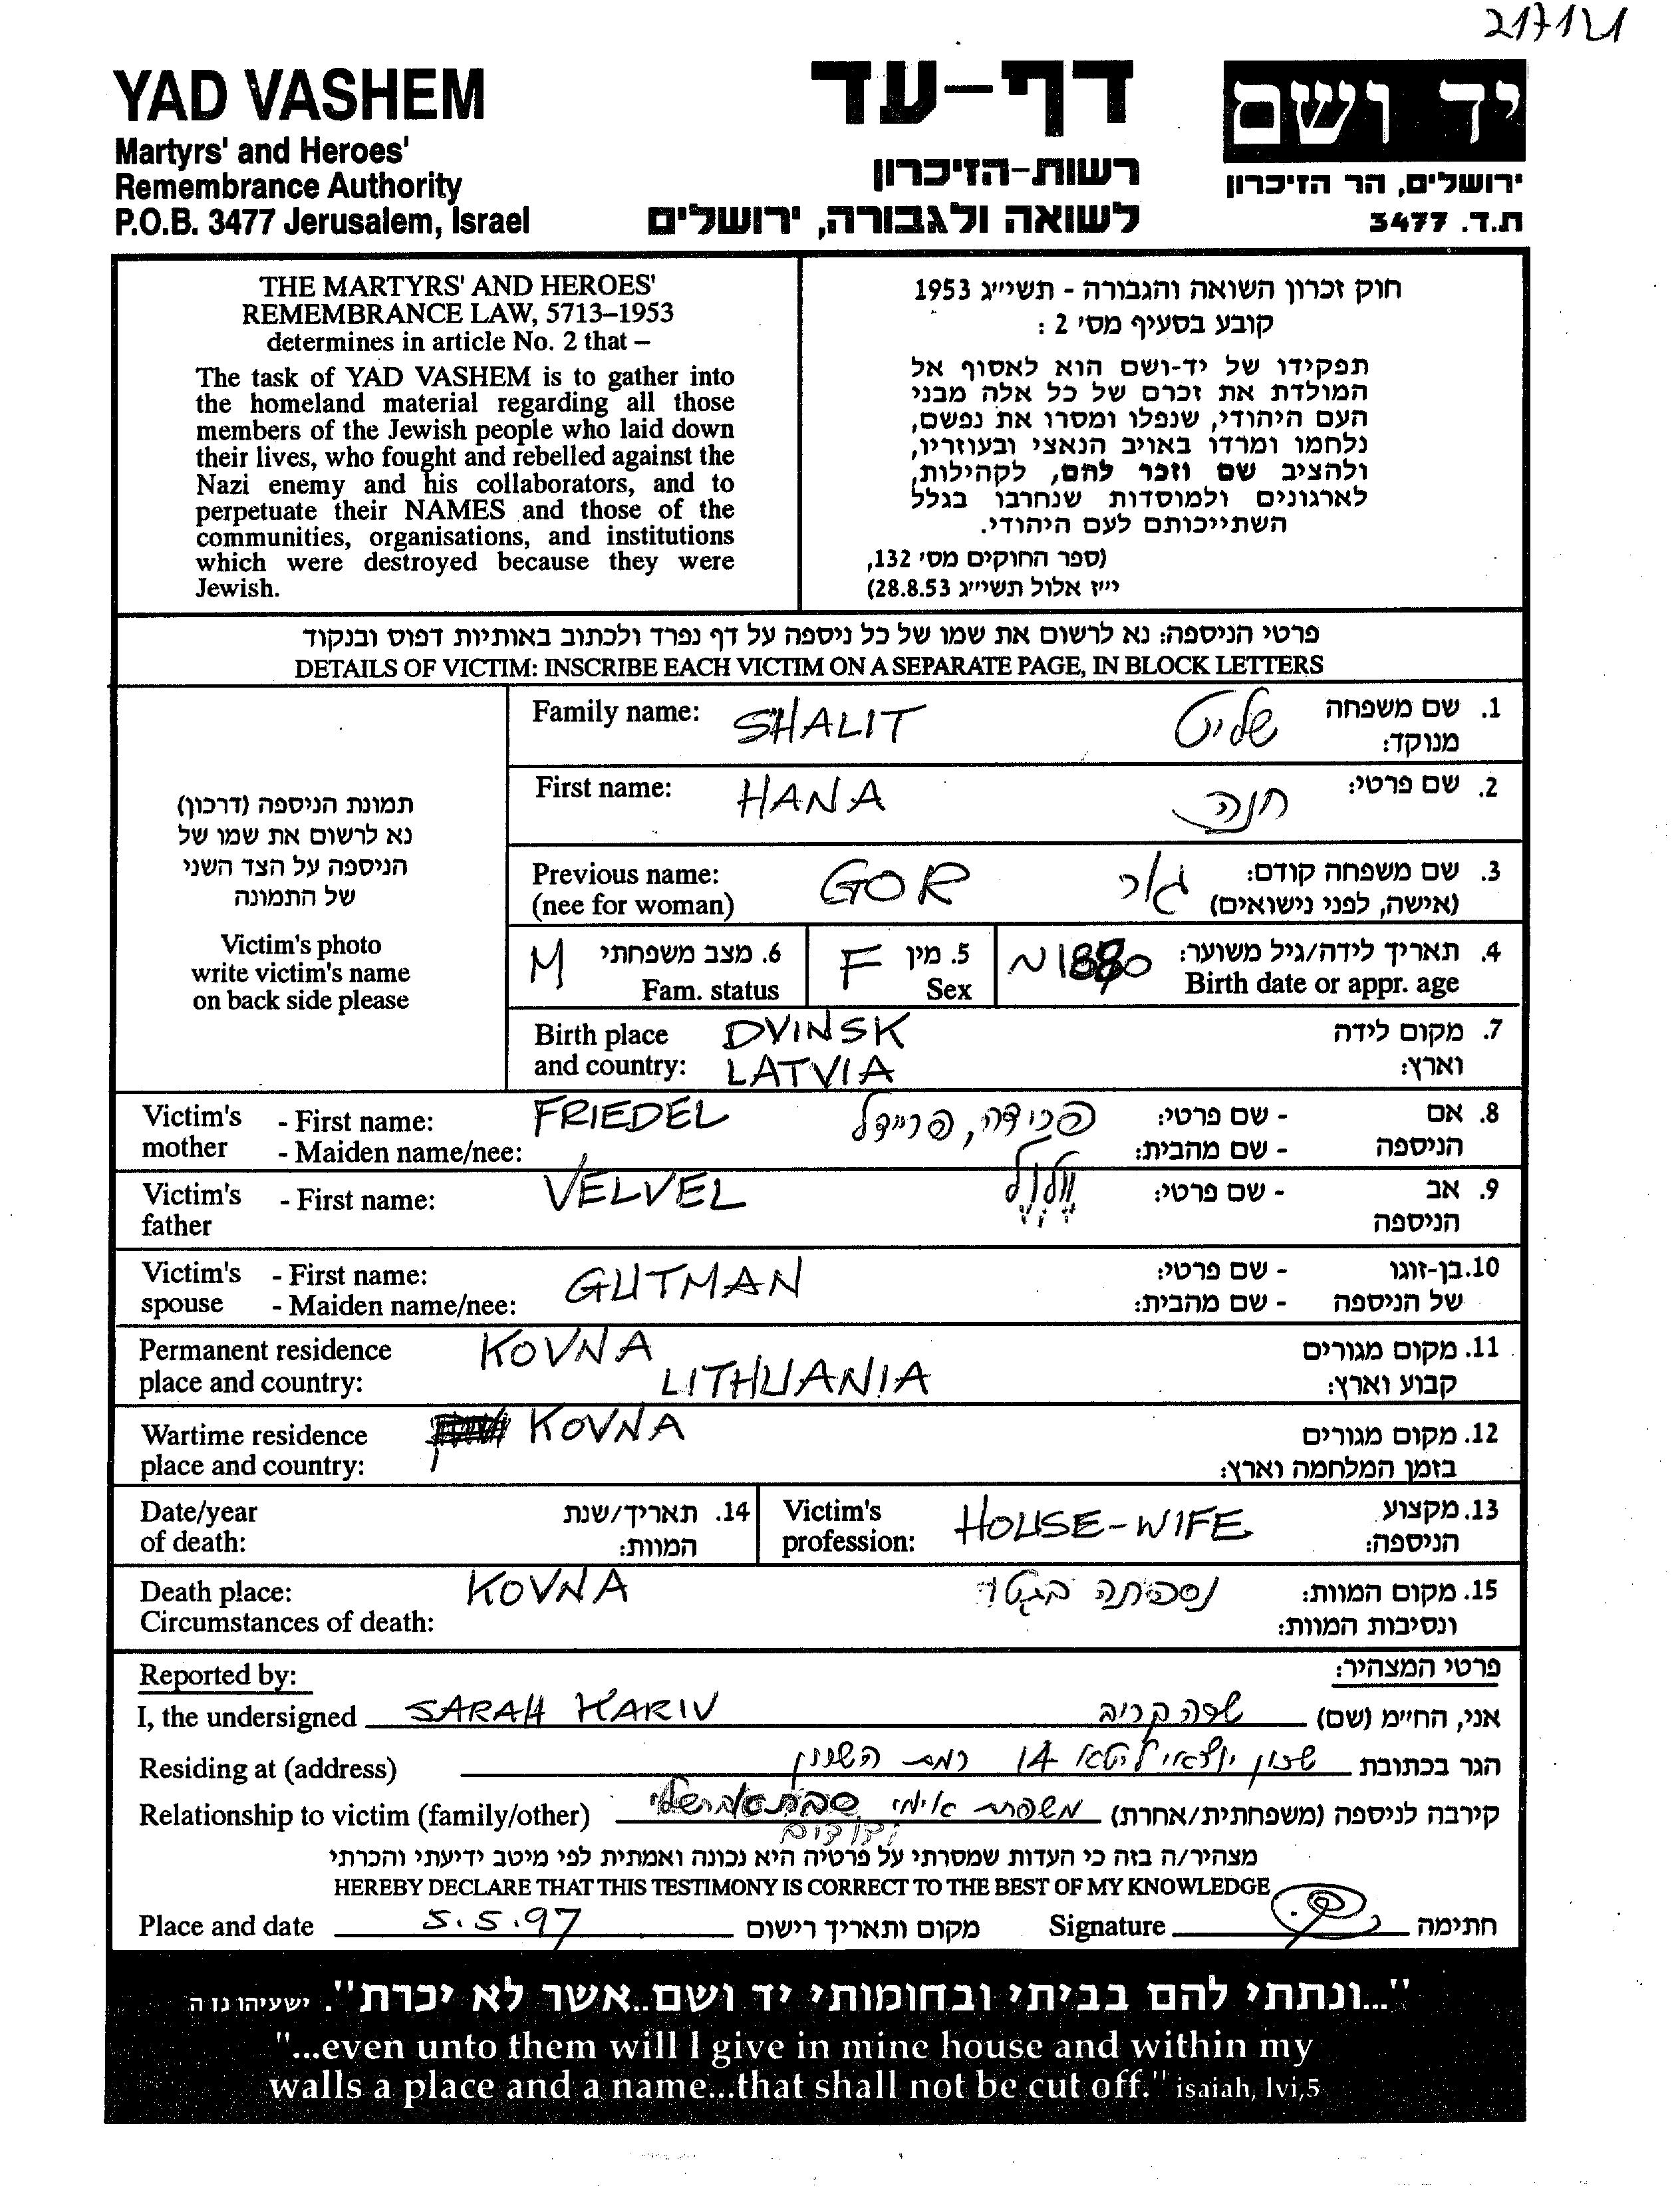 217121
YAD VASHEM
Martyrs' and Heroes'
Remembrance Authority
P.O.B. 3477 Jerusalem, Israel
דף-עד
רשות-הזיכרון
לשואה ולגבורה, ירושלים
יד ושם
ירושלים, הר הזיכרון
ת.ד. 3477
THE MARTYRS' AND HEROES'
REMEMBRANCE LAW, 5713–1953
determines in article No. 2 that –
The task of YAD VASHEM is to gather into
the homeland material regarding all those
members of the Jewish people who laid down
their lives, who fought and rebelled against the
Nazi enemy and his collaborators, and to
perpetuate their NAMES and those of the
communities, organisations, and institutions
which were destroyed because they were
Jewish.
חוק זכרון השואה והגבורה - תשי״ג 1953
קובע בסעיף מס' 2 :
תפקידו של יד-ושם הוא לאסוף אל
המולדת את זכרם של כל אלה מבני
העם היהודי, שנפלו ומסרו את נפשם,
נלחמו ומרדו באויב הנאצי ובעוזריו,
ולהציב שם וזכר להם, לקהילות,
לארגונים ולמוסדות שנחרבו בגלל
השתייכותם לעם היהודי.
(ספר החוקים מס' 132,
י״ז אלול תשי״ג 28.8.53)
פרטי הניספה: נא לרשום את שמו של כל ניספה על דף נפרד ולכתוב באותיות דפוס ובנקוד
DETAILS OF VICTIM: INSCRIBE EACH VICTIM ON A SEPARATE PAGE, IN BLOCK LETTERS
תמונת הניספה (דרכון)
נא לרשום את שמו של
הניספה על הצד השני
של התמונה
Victim's photo
write victim's name
on back side please
Family name: SHALIT שליט 1. שם משפחה
מנוקד:
First name: HANA חנה 2. שם פרטי:
Previous name: GOR גור 3. שם משפחה קודם:
(nee for woman) (אישה, לפני נישואים)
M 6. מצב משפחתי F 5. מין ~1880 4. תאריך לידה/גיל משוער:
Fam. status Sex Birth date or appr. age
Birth place DVINSK 7. מקום לידה
and country: LATVIA וארץ:
Victim's - First name: FRIEDEL פרידה, פריידל - שם פרטי: 8. אם
mother - Maiden name/nee: - שם מהבית: הניספה
Victim's - First name: VELVEL וולוול - שם פרטי: 9. אב
father הניספה
Victim's - First name: GUTMAN - שם פרטי: 10. בן-זוגו
spouse - Maiden name/nee: - שם מהבית: של הניספה
Permanent residence KOVNA 11. מקום מגורים
place and country: LITHUANIA קבוע וארץ:
Wartime residence KOVNA 12. מקום מגורים
place and country: בזמן המלחמה וארץ:
Date/year 14. תאריך/שנת Victim's HOUSE-WIFE 13. מקצוע
of death: המוות: profession: הניספה:
Death place: KOVNA נספתה בגטו 15. מקום המוות:
Circumstances of death: ונסיבות המוות:
Reported by: פרטי המצהיר:
I, the undersigned SARAH KARIV שרה קריב אני, החי״מ (שם)
Residing at (address) שכון יוצאי ליטא 14 רמת השרון הגר בכתובת
Relationship to victim (family/other) משפחת אימי קירבה לניספה (משפחתית/אחרת)
מצהיר/ה בזה כי העדות שמסרתי על פרטיה היא נכונה ואמתית לפי מיטב ידיעתי והכרתי
HEREBY DECLARE THAT THIS TESTIMONY IS CORRECT TO THE BEST OF MY KNOWLEDGE
Place and date 5.5.97 מקום ותאריך רישום Signature חתימה
"...ונתתי להם בביתי ובחומותי יד ושם..אשר לא יכרת". ישעיהו נז ה
"...even unto them will I give in mine house and within my
walls a place and a name...that shall not be cut off." isaiah, lvi,5